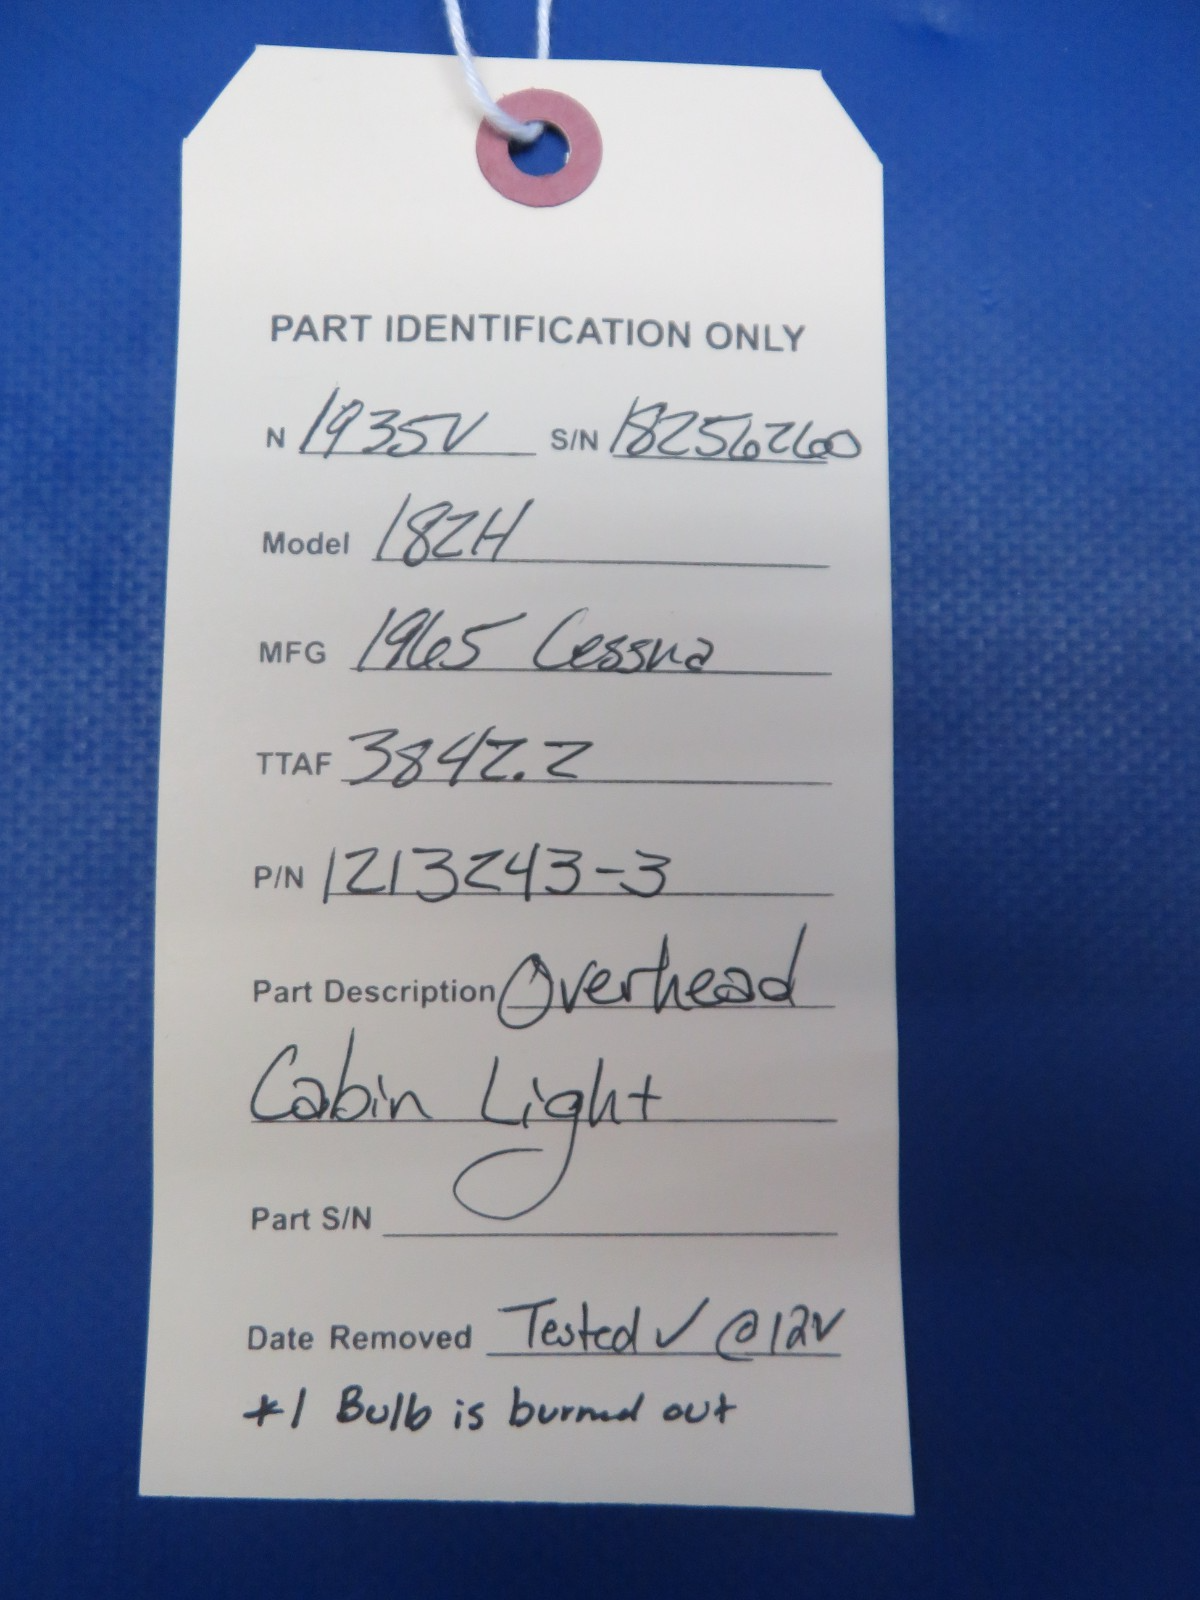 PART IDENTIFICATION ONLY
N 1935V S/N 18256260
Model 182H
MFG 1965 Cessna
TTAF 3842.2
P/N 1213243-3
Part Description Overhead
Cabin Light
Part S/N
Date Removed Tested ✓ @12V
*1 Bulb is burned out